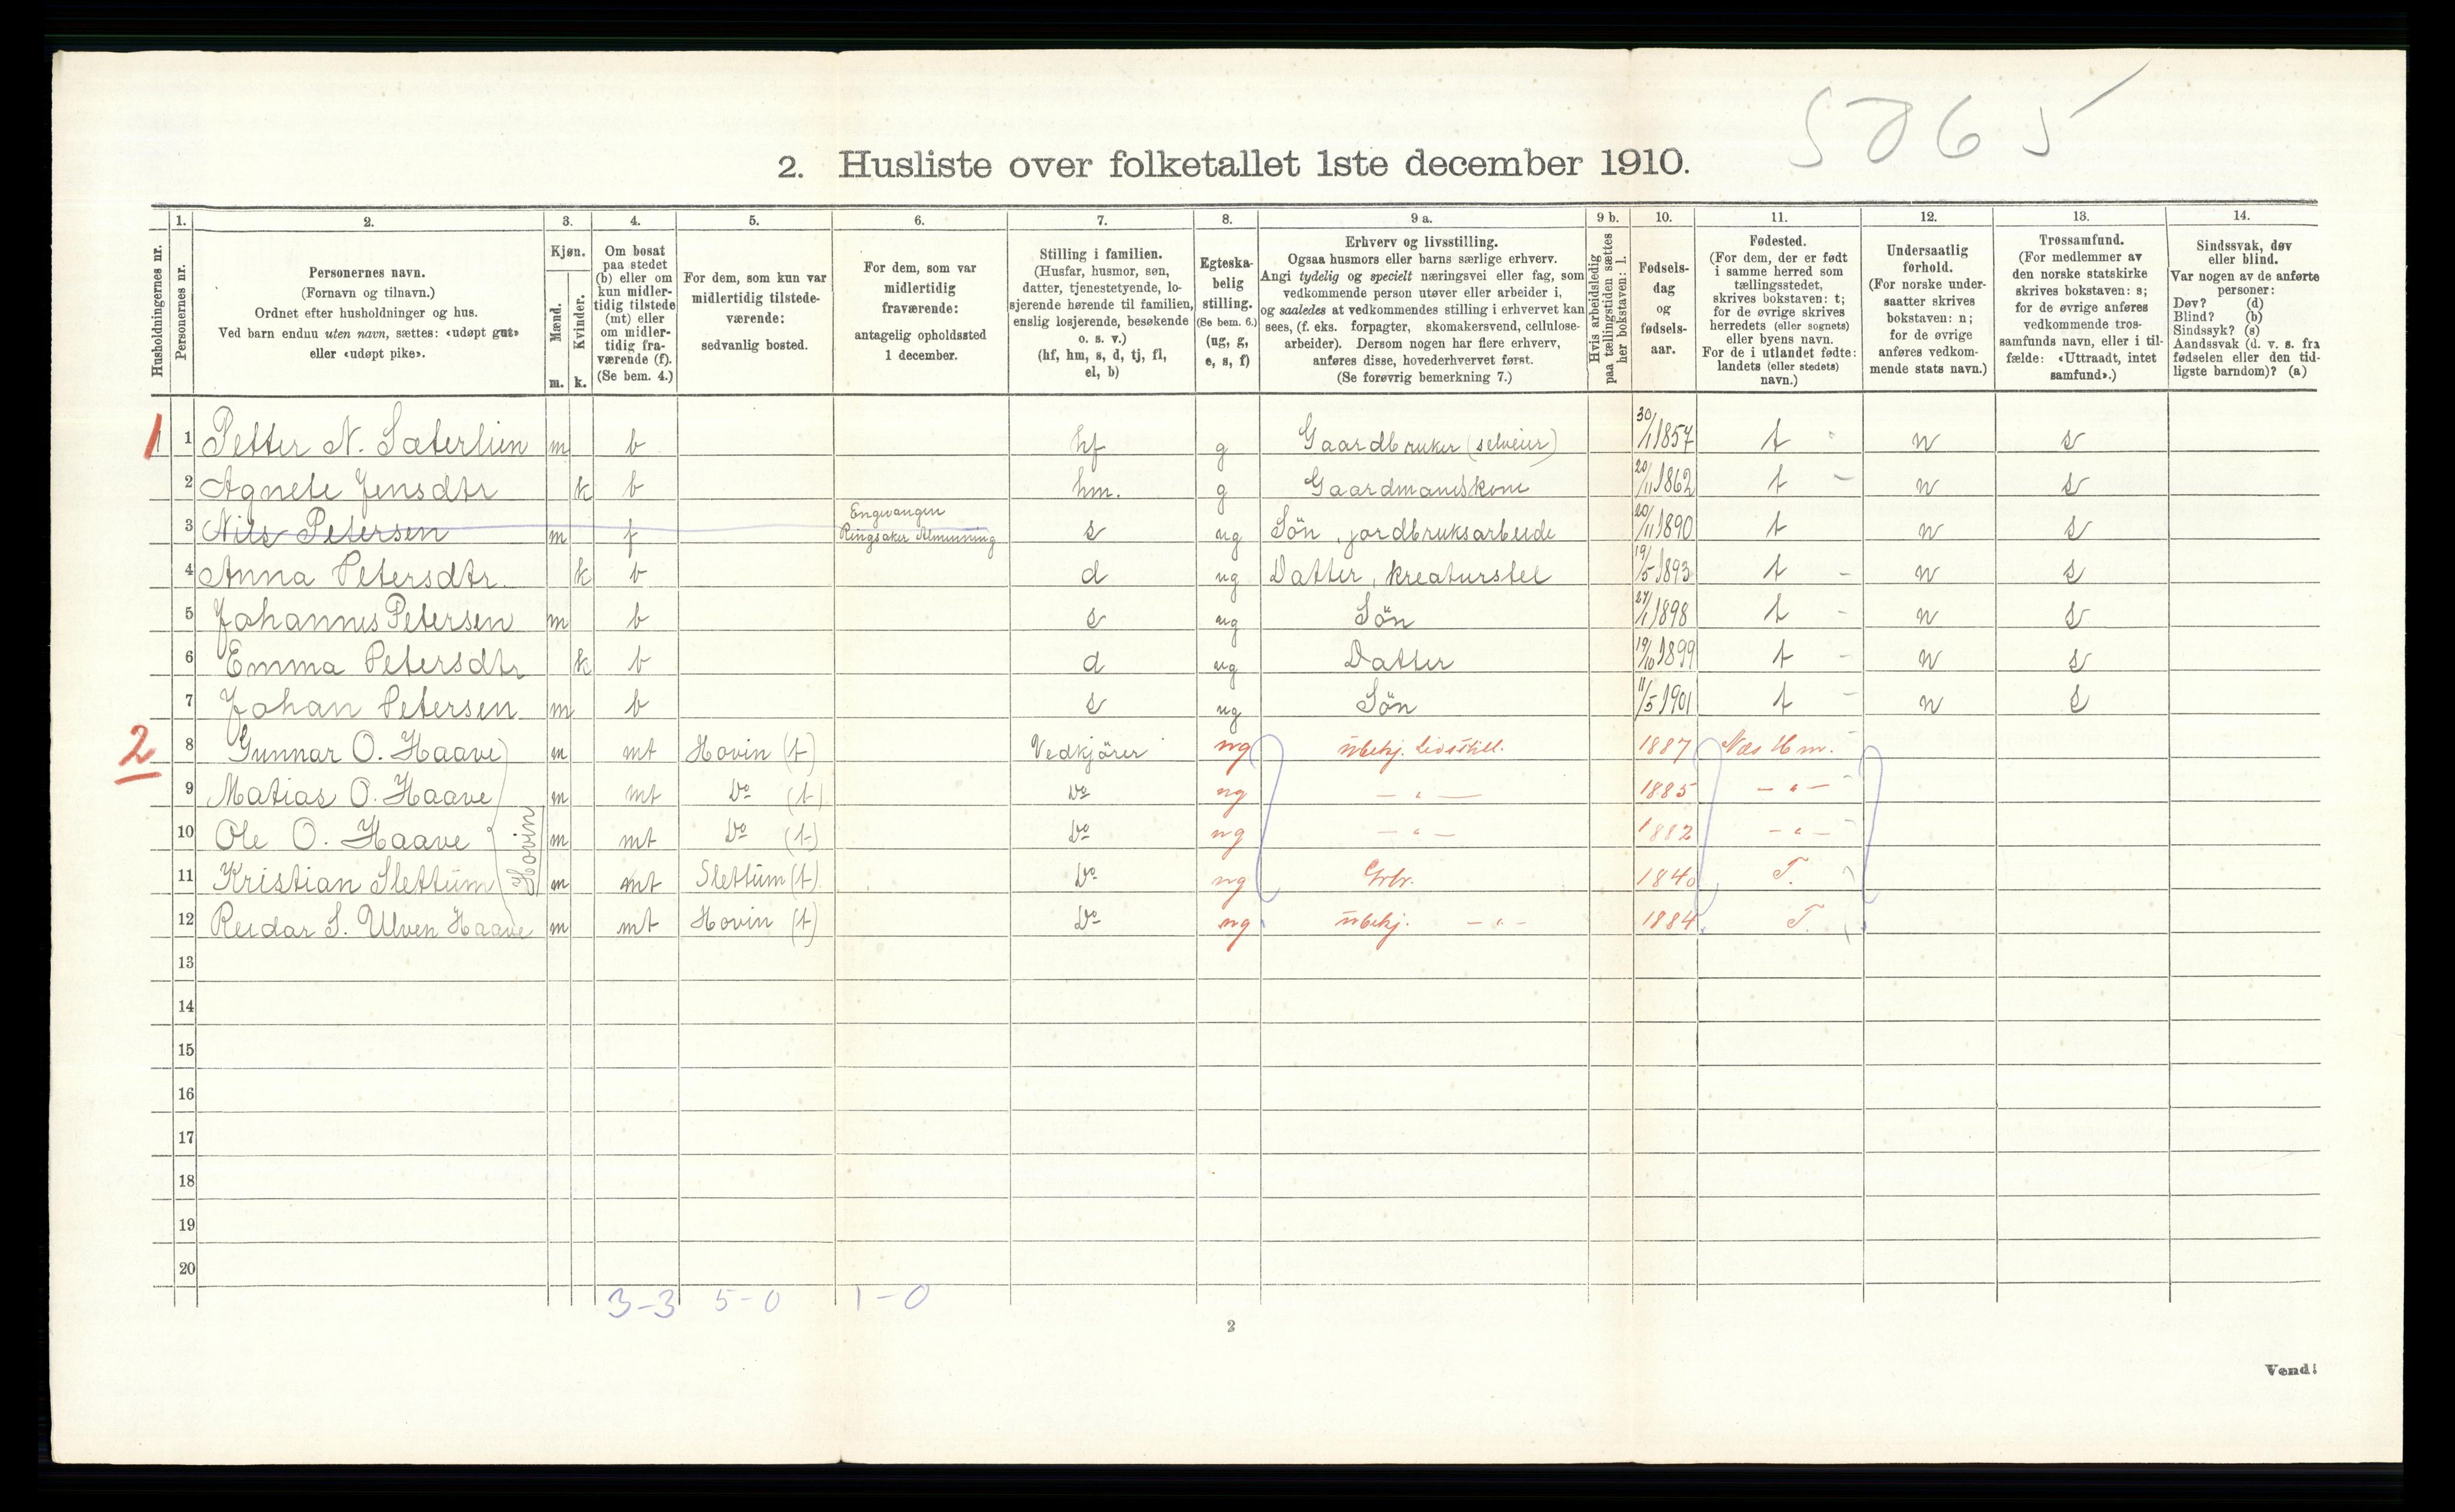 5865
2. Husliste over folketallet 1ste december 1910.
Husholdningernes nr.
1.
Personernes nr.
2.
Personernes navn.
(Fornavn og tilnavn.)
Ordnet efter husholdninger og hus.
Ved barn endnu uten navn, sættes: «udøpt gut»
eller «udøpt pike».
3.
Kjøn.
Mænd.
Kvinder.
m. k.
4.
Om bosat
paa stedet
(b) eller om
kun midler-
tidig tilstede
(mt) eller
om midler-
tidig fra-
værende (f).
(Se bem. 4.)
5.
For dem, som kun var
midlertidig tilstede-
værende:
sedvanlig bosted.
6.
For dem, som var
midlertidig
fraværende:
antagelig opholdssted
1 december.
7.
Stilling i familien.
(Husfar, husmor, søn,
datter, tjenestetyende, lo-
sjerende hørende til familien,
enslig losjerende, besøkende
o. s. v.)
(hf, hm, s, d, tj, fl,
el, b)
8.
Egteska-
belig
stilling.
(Se bem. 6.)
(ug, g,
e, s, f)
9 a.
Erhverv og livsstilling.
Ogsaa husmors eller barns særlige erhverv.
Angi tydelig og specielt næringsvei eller fag, som
vedkommende person utøver eller arbeider i,
og saaledes at vedkommendes stilling i erhvervet kan
sees, (f. eks. forpagter, skomakersvend, cellulose-
arbeider). Dersom nogen har flere erhverv,
anføres disse, hovederhvervet først.
(Se forøvrig bemerkning 7.)
9 b.
Hvis arbeidsledig
paa tællingstiden sættes
her bokstaven: l.
10.
Fødsels-
dag
og
fødsels-
aar.
11.
Fødested.
(For dem, der er født
i samme herred som
tællingsstedet,
skrives bokstaven: t;
for de øvrige skrives
herredets (eller sognets)
eller byens navn.
For de i utlandet fødte:
landets (eller stedets)
navn.)
12.
Undersaatlig
forhold.
(For norske under-
saatter skrives
bokstaven: n;
for de øvrige
anføres vedkom-
mende stats navn.)
13.
Trossamfund.
(For medlemmer av
den norske statskirke
skrives bokstaven: s;
for de øvrige anføres
vedkommende tros-
samfunds navn, eller i til-
fælde: «Uttraadt, intet
samfund».)
14.
Sindssvak, døv
eller blind.
Var nogen av de anførte
personer:
Døv? (d)
Blind? (b)
Sindssyk? (s)
Aandssvak (d. v. s. fra
fødselen eller den tid-
ligste barndom)? (a)
1 1 Petter N. Sæterlien m b hf g Gaardbruker (selveier) 30/1 1857 t n s
2 Agnete Jensdtr k b hm. g Gaardmandskone 20/11 1862 t - n s
3 Nils Petersen m f Engvangen Ringsaker Alminning s ug Sön, jordbruksarbeide 20/11 1890 t n s
4 Anna Petersdtr. k b d ug Datter, kreaturstel 19/5 1893 t - n s
5 Johannes Petersen m b s ug Sön 27/1 1898 t - n s
6 Emma Petersdtr k b d ug Datter 19/10 1899 t - n s
7 Johan Petersen m b s ug Sön 11/5 1901 t - n s
2 8 Gunnar O. Haave m mt Hovin (t) Vedkjörer ug ubekj. Livsstill. 1887 Næs Hm. -
9 Matias O. Haave m mt Do (t) Do ug - " - 1885 - " -
10 Ole O. Haave m mt Do (t) Do ug - " - 1882 - " -
11 Kristian Slettum m mt Slettum (t) Do ug Grbr. 1840 T.
12 Reidar S. Ulven Haave m mt Hovin (t) Do ug ubekj. - " - 1884 T.
Hovin
13
14
15
16
17
18
19
20
3-3 5-0 1-0
2
Vend!